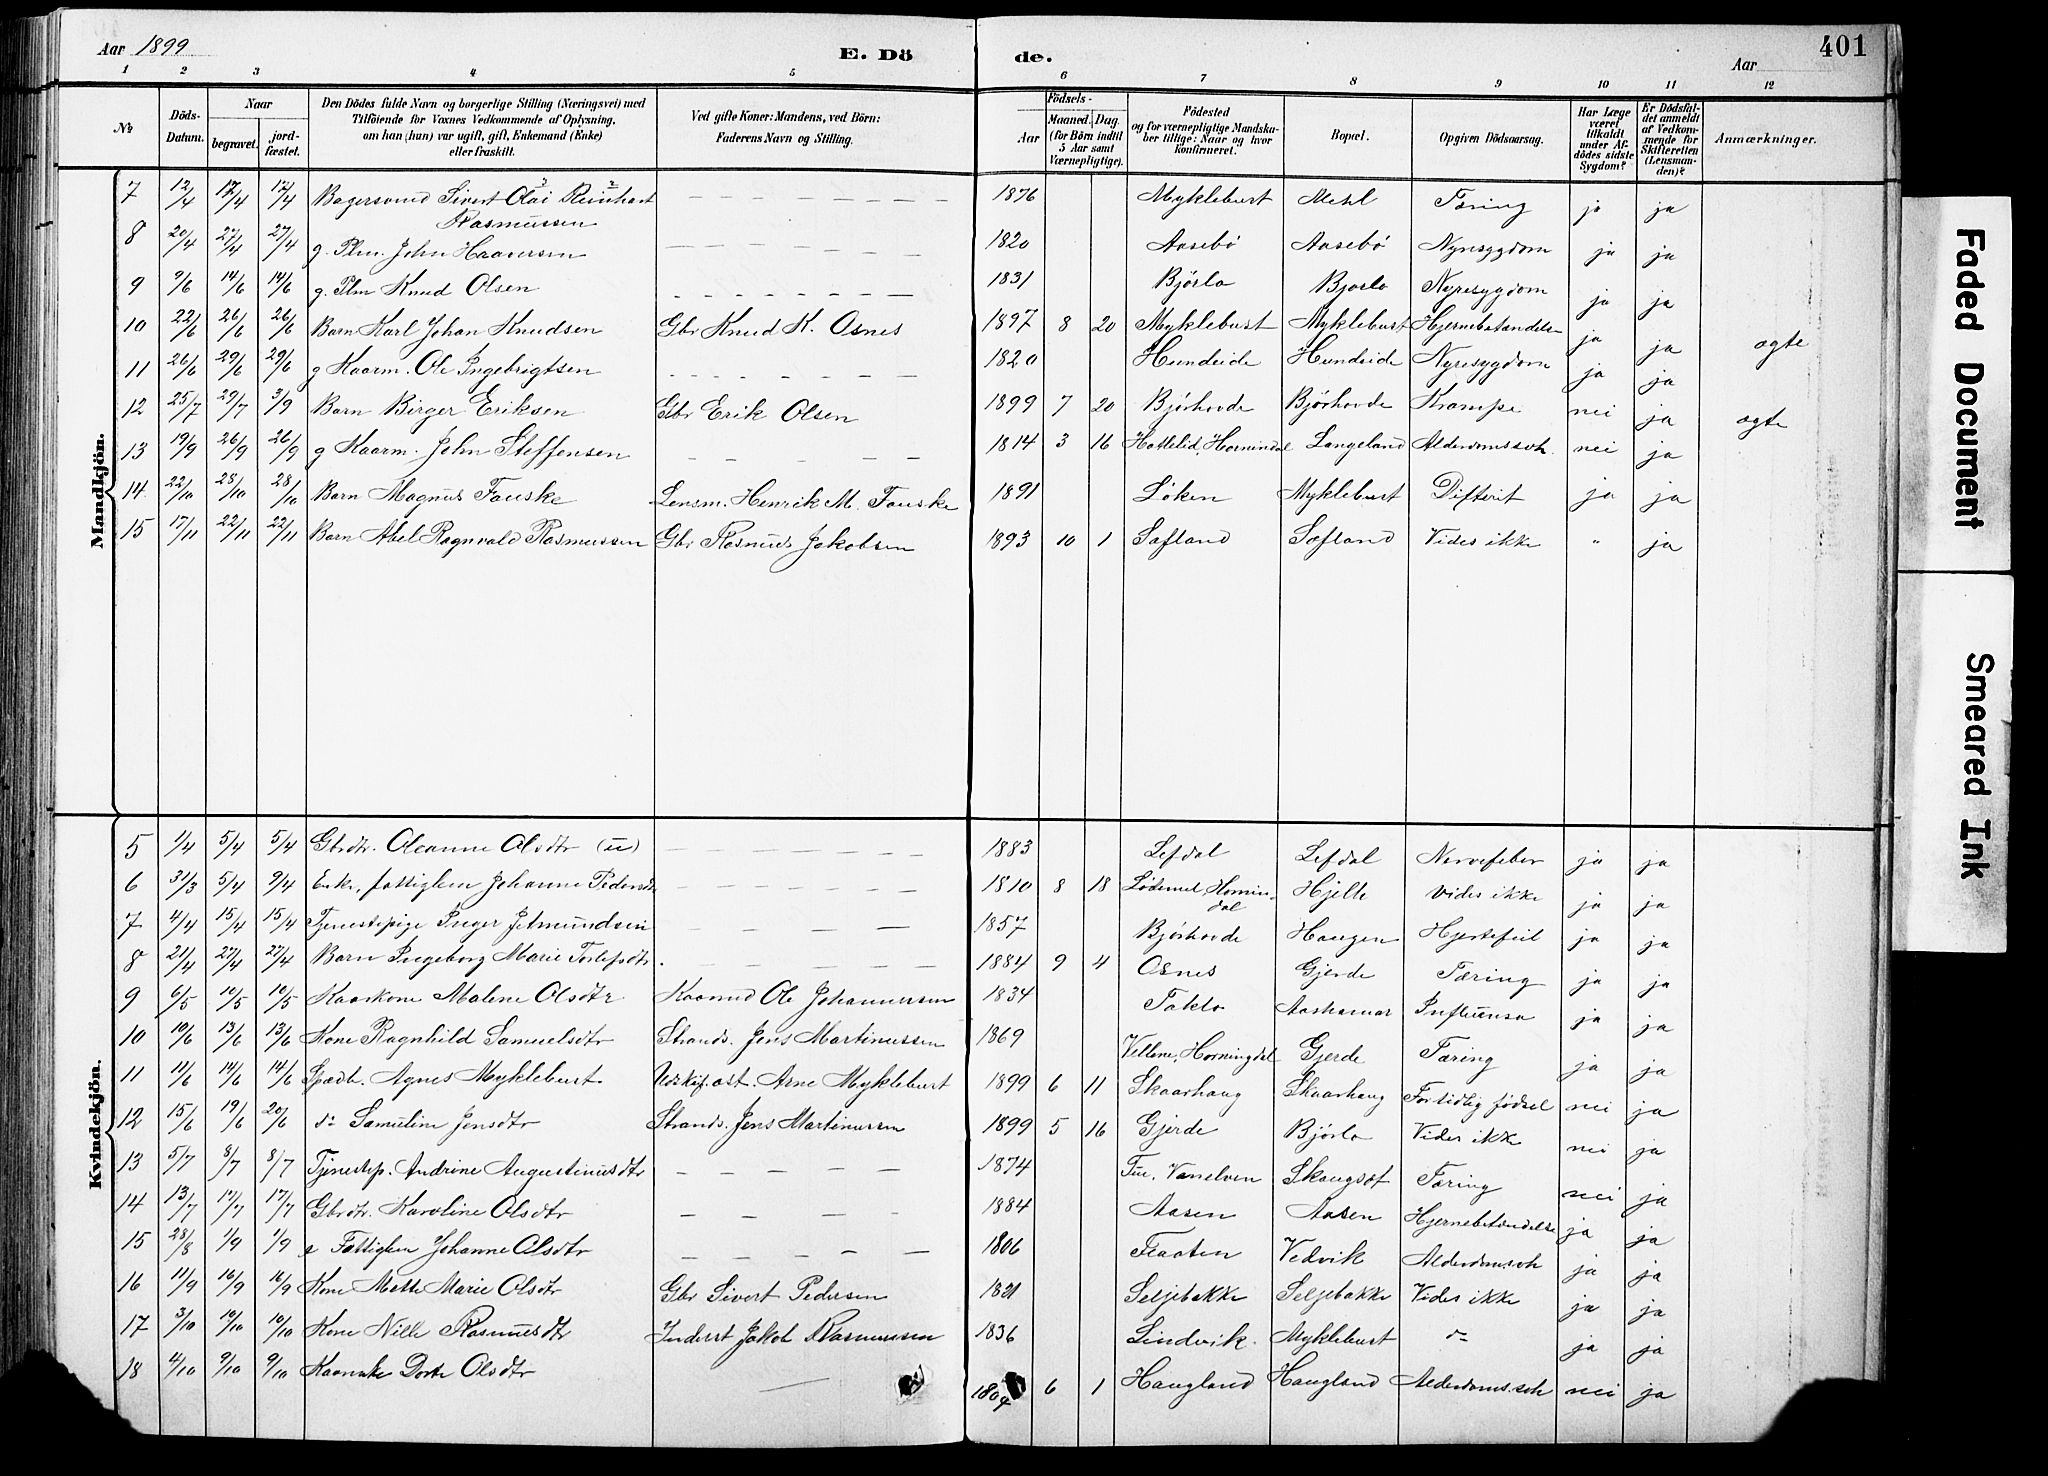 Aar 1899
E. Dö
de.
Aar
401
1 2 3 4 5 6 7 8 9 10 11 12
No
Döds-Datum.
Naar
begravet.
jord-fæstet.
Den Dödes fulde Navn og borgerlige Stilling (Næringsvei) med
Tilföiende for Voxnes Vedkommende af Oplysning,
om han (hun) var ugift, gift, Enkemand (Enke)
eller fraskilt.
Ved gifte Koner: Mandens, ved Börn:
Faderens Navn og Stilling.
Födsels-
Aar
Maaned. Dag.
(for Börn indtil
5 Aar samt
Værnepligtige).
Födested
og for værnepligtige Mandska-
ber tillige: Naar og hvor
konfirmeret.
Bopæl.
Opgiven Dödsaarsag.
Har Læge
været
tilkaldt
under Af-
dödes sidste
Sygdom?
Er Dödsfal-
det anmeldt
af Vedkom-
mende for
Skifteretten
(Lensman-
den)?
Anmærkninger.
Mandkjön.
7 12/4 17/4 17/4 Bagersvend Sivert Olai Reinhart Rasmussen 1876 Myklebust Tæring ja ja
8 20/4 27/4 27/4 g. Plm. John Haaversen 1820 Aasebö Aasebö Nyresygdom ja ja
9 9/6 14/6 14/6 g. Plm Knud Olsen 1831 Björlo Björlo Nyresygdom ja ja
10 22/6 26/6 26/6 Barn Karl Johan Knudsen Gbr Knud K. Osnes 1897 8 20 Myklebust Myklebust Hjernebetændelse ja ja ægte
11 26/6 29/6 29/6 g Kaarm. Ole Ingebrigtsen 1820 Hundeide Hundeide Nyresygdom ja ja
12 25/7 29/7 3/9 Barn Birger Eriksen Gbr Erik Olsen 1899 7 20 Björhovde Björhovde Krampe nei ja ægte
13 19/9 26/9 26/9 g Kaarm. John Steffensen 1814 3 16 Hornindal Langeland Alderdomssvh. nei ja
14 22/10 28/10 28/10 Barn Magnus Fauske Lensm. Henrik M. Fauske 1891 Löken Myklebust Difterit ja ja
15 17/11 22/11 22/11 Barn Abel Ragnvald Rasmussen Gbr Rasmus Jakobsen 1893 10 1 Sæfland Sæfland Vides ikke " ja
Kvindekjön.
5 1/4 5/4 5/4 Gbrdtr. Oleanne Olsdtr (u) 1883 Lefdal Lefdal Nervefeber ja ja
6 31/3 5/4 9/4 Enke, fattiglem Johanne Pedersdtr 1810 8 18 Lödemel, Hornindal Hjelle Vides ikke ja ja
7 4/4 15/4 15/4 Tjenestepige Inger Jetmundsen 1857 Björhovde Haugen Hjertefeil ja ja
8 21/4 27/4 27/4 Barn Ingeborg Marie Torlefsdtr. 1884 9 4 Osnes Gjerde Tæring ja ja
9 6/5 10/5 10/5 Kaarkone Malene Olsdtr Kaarmd Ole Johannessen 1834 Taklo Aashamar Influensa ja ja
10 10/6 13/6 13/6 Kone Ragnhild Samuelsdtr Strands. Jens Martinussen 1869 Horningdal Gjerde Tæring ja ja
11 11/6 14/6 14/6 Spædb. Agnes Myklebust Arne Myklebust 1899 6 11 Skaarhaug Skaarhaug Fortidlig födsel nei ja
12 15/6 19/6 20/6 do Samuline Jensdtr Strands. Jens Martinussen 1899 5 16 Gjerde Björlo Vides ikke nei ja
13 5/7 8/7 8/7 Tjenestep. Andrine Augustinusdtr 1874 Tue, Vanelven Skaugsæt Tæring nei ja
14 13/7 17/7 17/7 Gbrdtr. Karoline Olsdtr 1884 Aasen Aasen Hjernebetændelse ja ja
15 28/8 1/9 1/9 e Fattiglem Johanne Olsdtr 1806 Flaaten Vedvik Alderdomssvh ja ja
16 11/9 16/9 16/9 Kone Mette Marie Olsdtr Gbr Sivert Pedersen 1821 Seljebakke Seljebakke Vides ikke ja ja
17 3/10 10/10 10/10 Kone Nille Rasmusdtr Inderst Jakob Rasmussen 1836 Lindvik. Myklebust do ja ja
18 4/10 9/10 9/10 Kaarenke Dorte Olsdtr 1804 6 1 Haugland Haugland Alderdomssvh nei ja
Faded Document
Smeared Ink